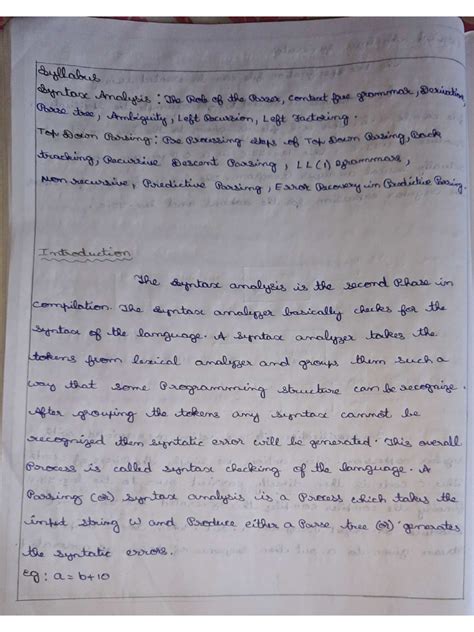 Syllabus
Syntax Analysis : The Role of the Parser, Context free grammar, Derivation
Parse tree, Ambiguity, Left Recursion, Left Factoring.
Top Down Parsing: Pre Processing steps of Top Down Parsing, Back
tracking, Recursive Descent Parsing, LL(1) grammars,
Non recursive, Predictive Parsing, Error Recovery in Predictive Parsing.
Introduction
The syntax analysis is the second Phase in
compilation. The syntax analyzer basically checks for the
syntax of the language. A syntax analyzer takes the
tokens from lexical analyzer and groups them such a
way that some Programming structure can be recognize.
After grouping the tokens any syntax cannot be
recognized then syntatic error will be generated. This overall
Process is called syntax checking of the language. A
Parsing (or) syntax analysis is a Process which takes the
input string w and Produce either a Parse tree (or) generates
the syntatic errors.
Eg : a = b+10